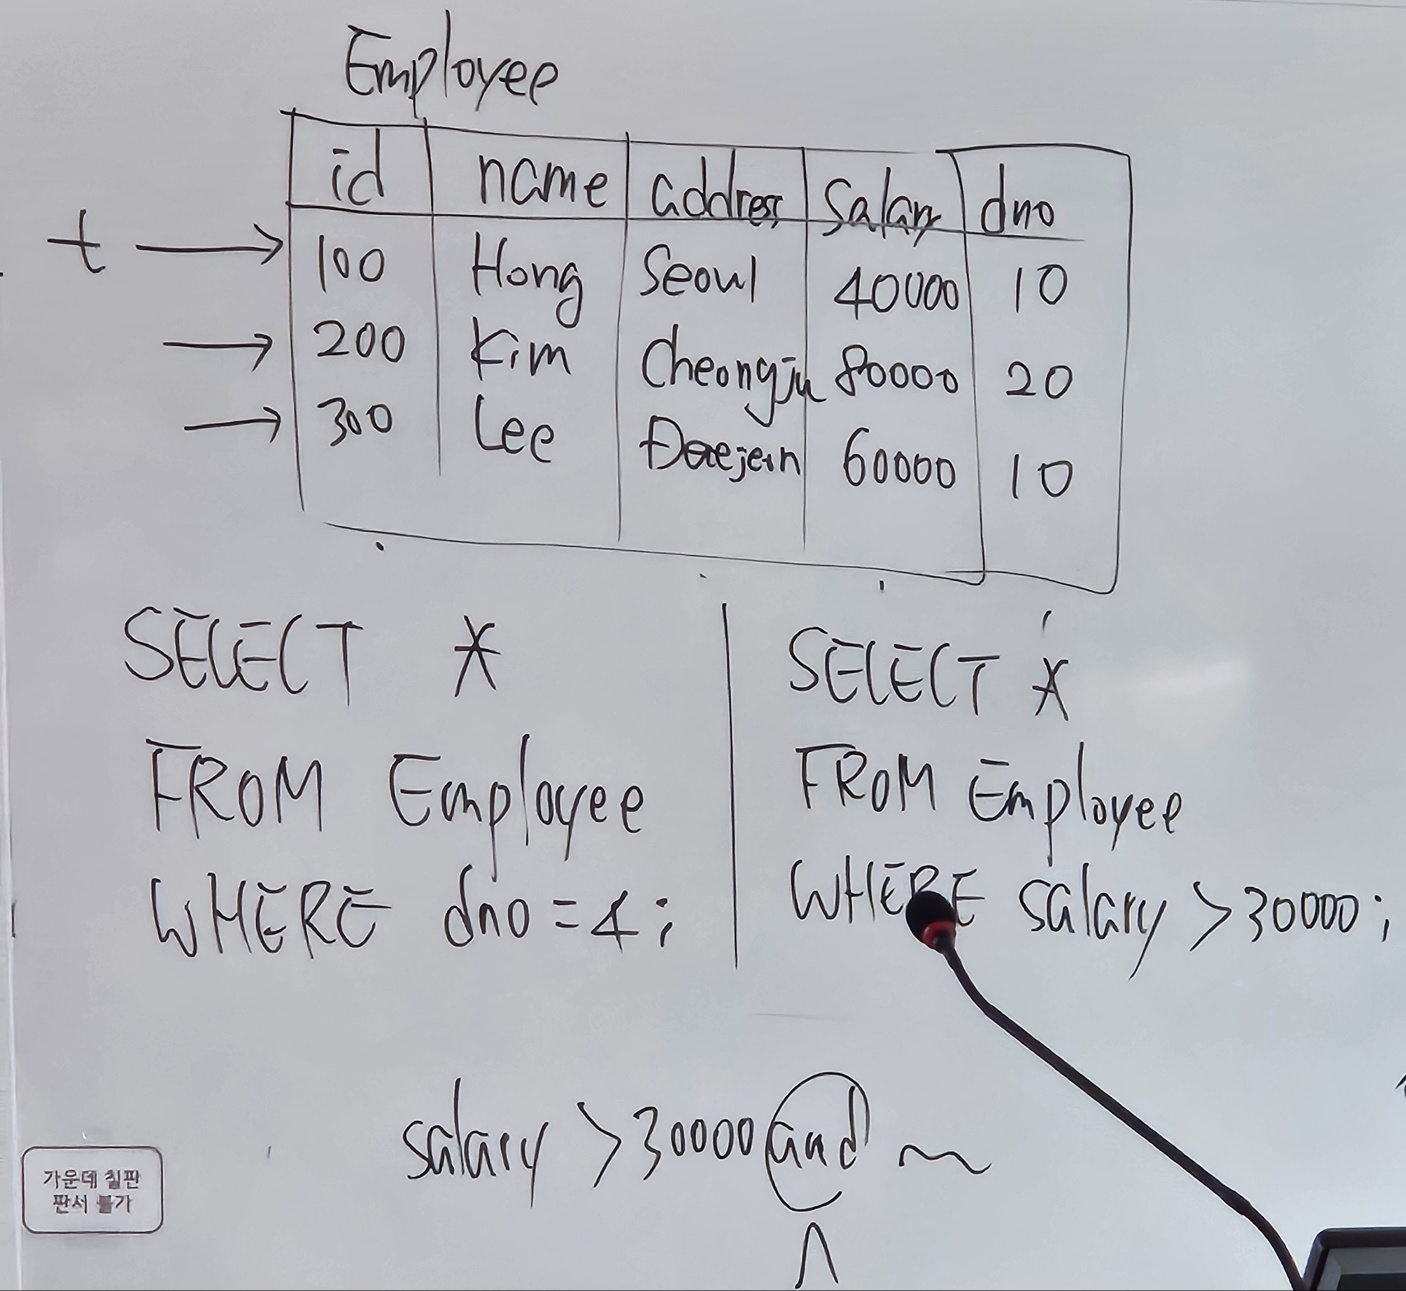 Employee
id name address salary dno
t → 100 Hong Seoul 40000 10
→ 200 Kim Cheongju 80000 20
→ 300 Lee Daejeon 60000 10
SELECT *
FROM Employee
WHERE dno = 4;
SELECT *
FROM Employee
WHERE salary > 30000;
salary > 30000 and ~
∧
가운데 칠판
판서 불가